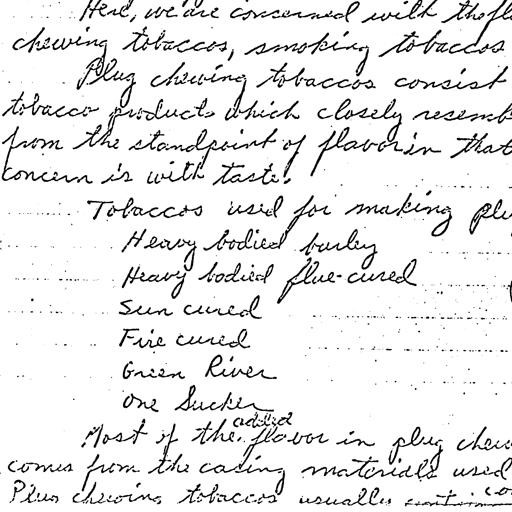 Here, we are concerned with the fl
chewing tobaccos, smoking tobaccos
Plug chewing tobaccos consist
tobacco products which closely resemb
from the standpoint of flavor in that
concern is with taste.
Tobaccos used for making plu
Heavy bodied burley
Heavy bodied flue-cured
Sun cured
Fire cured
Green River
One Sucker
added
Most of the flavor in plug chew
comes from the casing materials used
Plug chewing tobaccos usually contain